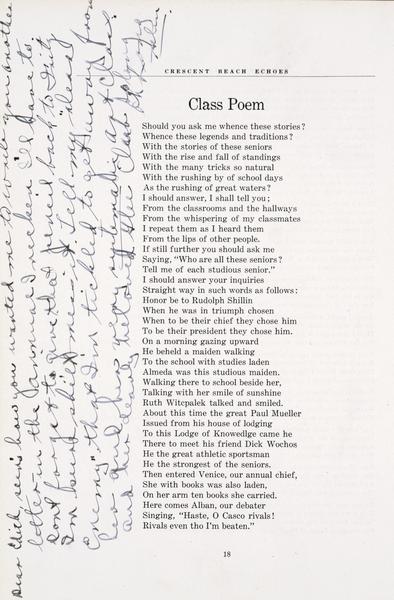 CRESCENT BEACH ECHOES
Class Poem
Should you ask me whence these stories?
Whence these legends and traditions?
With the stories of these seniors
With the rise and fall of standings
With the many tricks so natural
With the rushing by of school days
As the rushing of great waters?
I should answer, I shall tell you;
From the classrooms and the hallways
From the whispering of my classmates
I repeat them as I heard them
From the lips of other people.
If still further you should ask me
Saying, "Who are all these seniors?
Tell me of each studious senior."
I should answer your inquiries
Straight way in such words as follows:
Honor be to Rudolph Shillin
When he was in triumph chosen
When to be their chief they chose him
To be their president they chose him.
On a morning gazing upward
He beheld a maiden walking
To the school with studies laden
Almeda was this studious maiden.
Walking there to school beside her,
Talking with her smile of sunshine
Ruth Witcpalek talked and smiled.
About this time the great Paul Mueller
Issued from his house of lodging
To this Lodge of Knowedlge came he
There to meet his friend Dick Wochos
He the great athletic sportsman
He the strongest of the seniors.
Then entered Venice, our annual chief,
She with books was also laden,
On her arm ten books she carried.
Here comes Alban, our debater
Singing, "Haste, O Casco rivals!
Rivals even tho I'm beaten."
18
Dear Dick, seein's how you wanted me to write you another
letter in the
Don't forget to
I'm busy
enemy" that I'm tickled to get away from
and